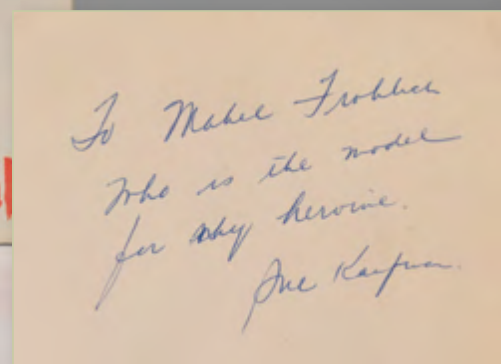 To Mabel Frohlich
who is the model
for my heroine.
Sue Kaufman.